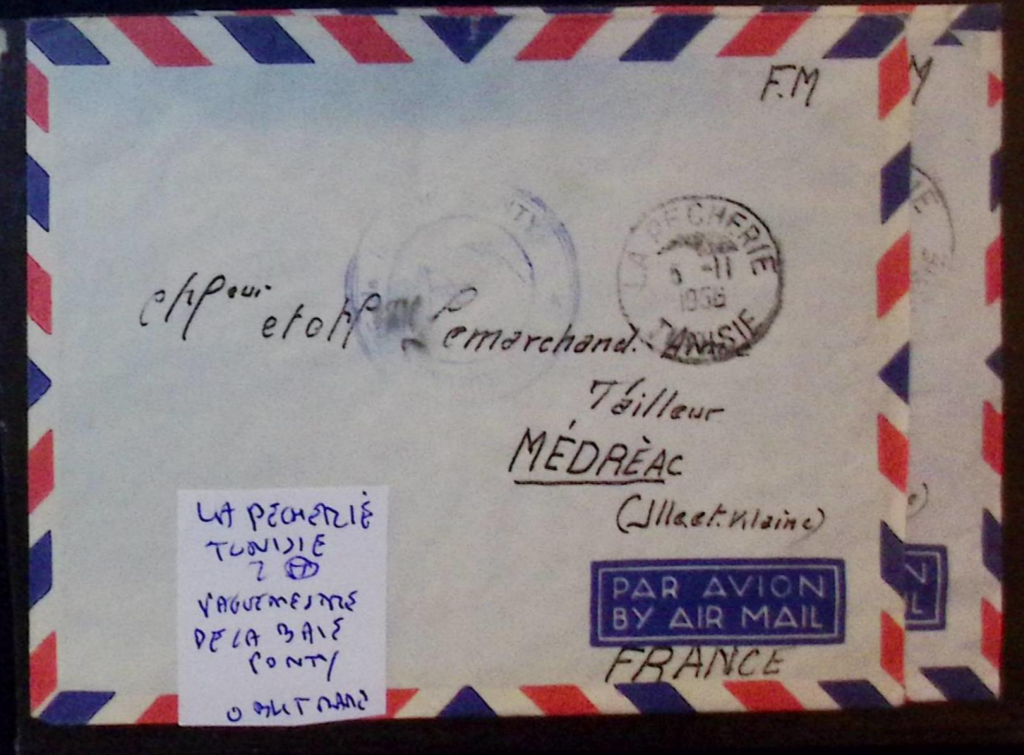 F.M
M
NTY
LA PECHERIE
6 -11
1956
TUNISIE
et
Lemarchand.
Tailleur
MÉDRÈAC
(Ille et. Vilaine)
PAR AVION
BY AIR MAIL
FRANCE
LA PECHERIE
TUNISIE
2
VAGUEMESTRE
DE LA BASE
PONTY